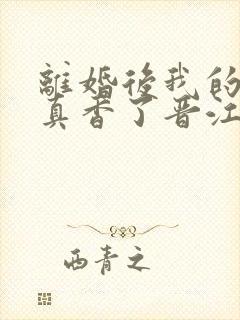 離婚後我的
真香了晋江
西青之